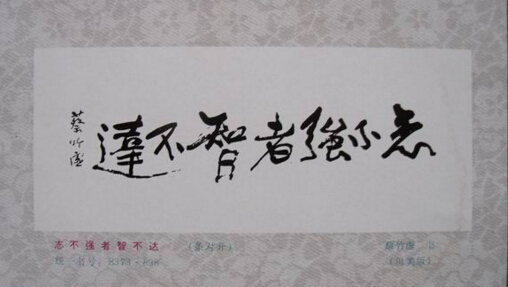 志不強者智不達
蔡竹虚
志不强者智不达 (条对开) 蔡竹虚
书号:8373·898